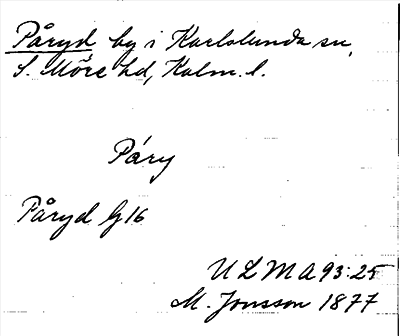 Påryd by i Karlslunda sn,
S. Möre hd, Kalm. l.
Páry
Påryd G16
ULMA 93:25
M. Jonsson 1877